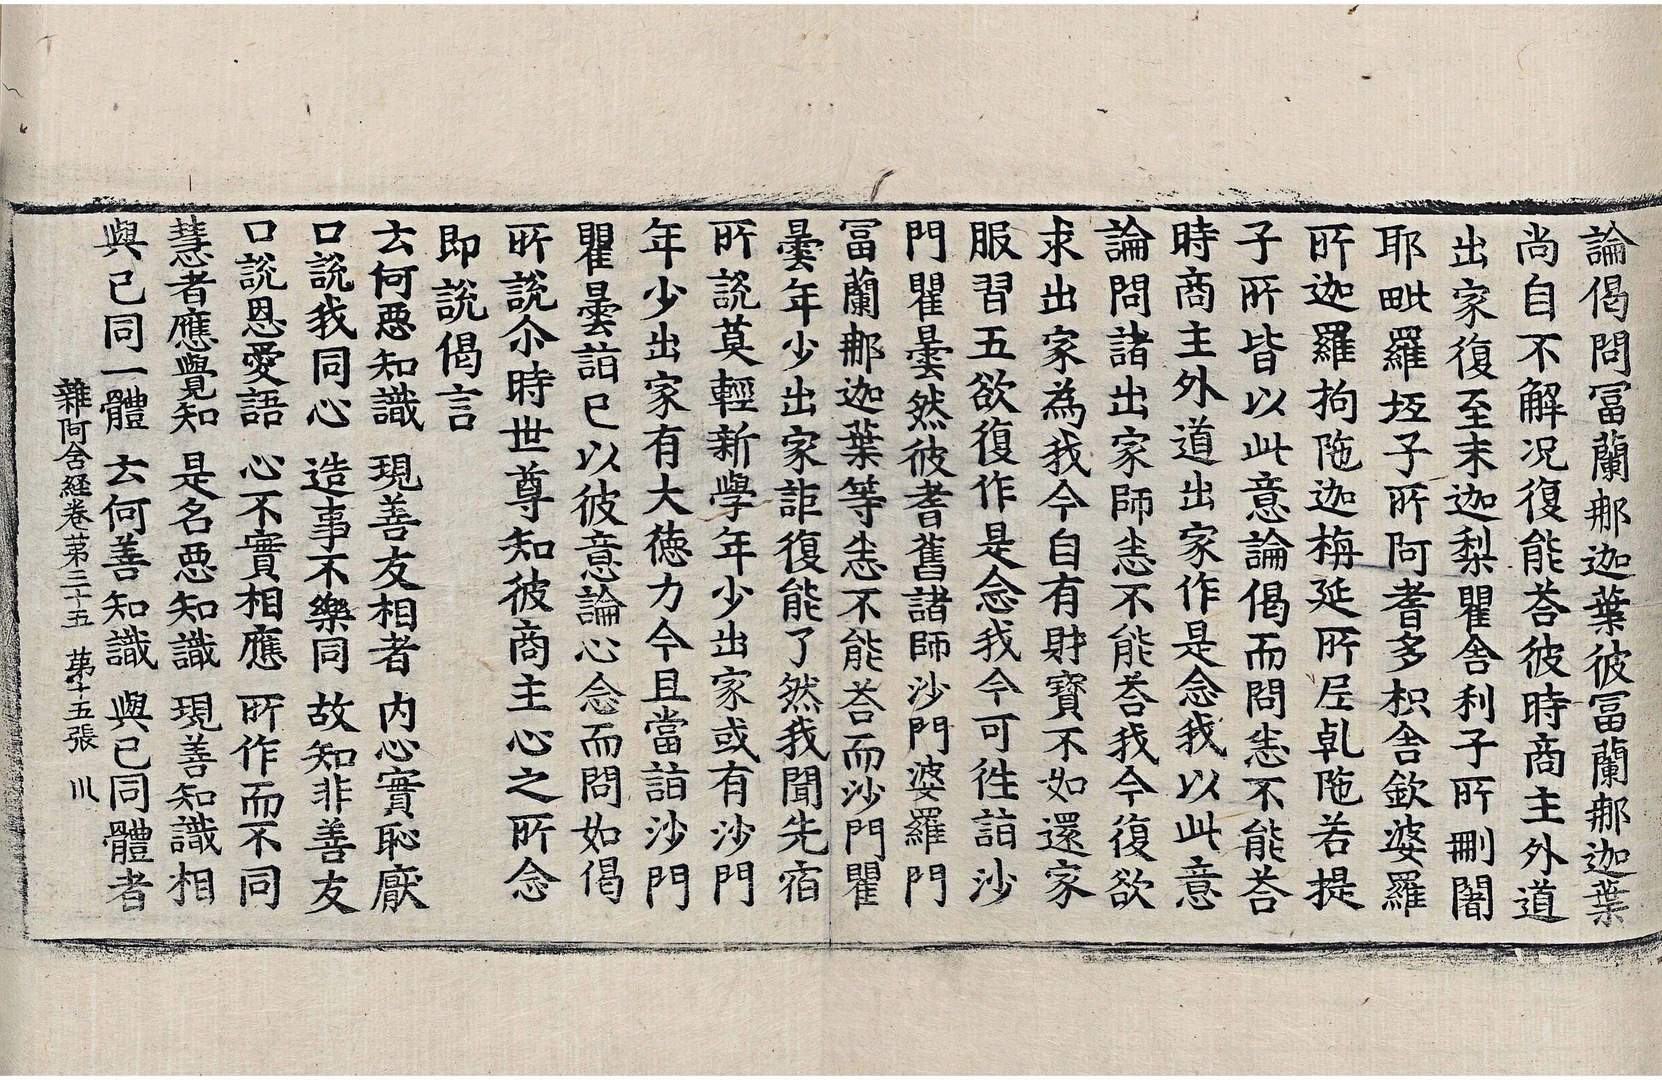 論偈問冨蘭那迦葉彼冨蘭那迦葉
尚自不解况復能荅彼時商主外道
出家復至末迦梨瞿舍利子所刪闍
耶毗羅坻子所阿耆多枳舍欽婆羅
所迦羅拘陁迦栴延所尼乹陁若提
子所皆以此意論偈而問悉不能荅
時商主外道出家作是念我以此意
論問諸出家師悉不能荅我今復欲
求出家為我今自有財寶不如還家
服習五欲復作是念我今可徃詣沙
門瞿曇然彼耆舊諸師沙門婆羅門
冨蘭那迦葉等悉不能荅而沙門瞿
曇年少出家詎復能了然我聞先宿
所說莫輕新學年少出家或有沙門
年少出家有大德力今且當詣沙門
瞿曇詣已以彼意論心念而問如偈
所說尒時世尊知彼商主心之所念
即說偈言
云何惡知識　現善友相者　內心實恥厭
口說我同心　造事不樂同　故知非善友
口說恩愛語　心不實相應　所作而不同
慧者應覺知　是名惡知識　現善知識相
與己同一體　云何善知識　與己同體者
雜阿含経卷苐三十五　苐十五張　川